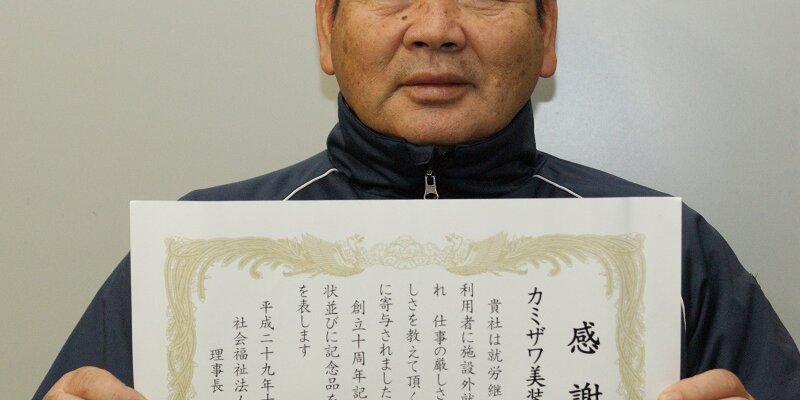 感謝
カミザワ美装
貴社は就労継
利用者に施設外就
れ 仕事の厳しさ
しさを教えて頂く
に寄与されました
創立十周年記
状並びに記念品を
を表します
平成二十九年十
社会福祉法人
理事長